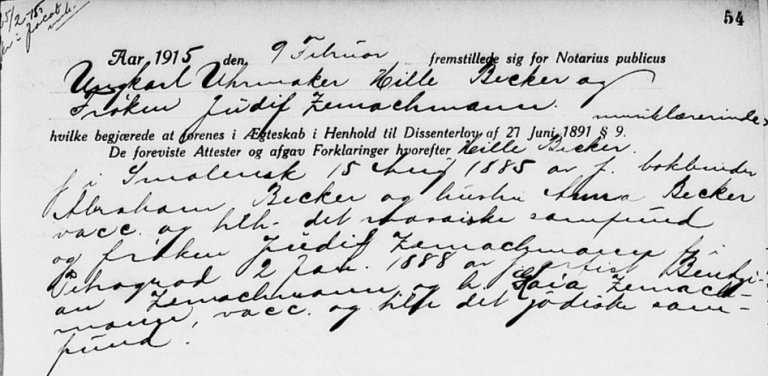 54
Aar 1915 den 9 Februar fremstillede sig for Notarius publicus
Ungkarl Uhrmaker Hille Becker og
Frøken Judif Zemachmann. musiklærerinde
hvilke begjærede at forenes i Ægteskab i Henhold til Dissenterlov af 27 Juni 1891 § 9.
De foreviste Attester og afgav Forklaringer hvorefter Hille Becker.
f. i Smolensk 15 Aug 1885 av f. bokbinder
Abraham Becker og hustru Anna Becker
vacc. og tilh. det mosaiske samfund
og frøken Judif Zemachmann f. i
Petrograd 2 Jan. 1888 av artist Bentzi-
an Zemachmann og h. Zemach-
mann, vacc. og tilh det jødiske sam-
fund.